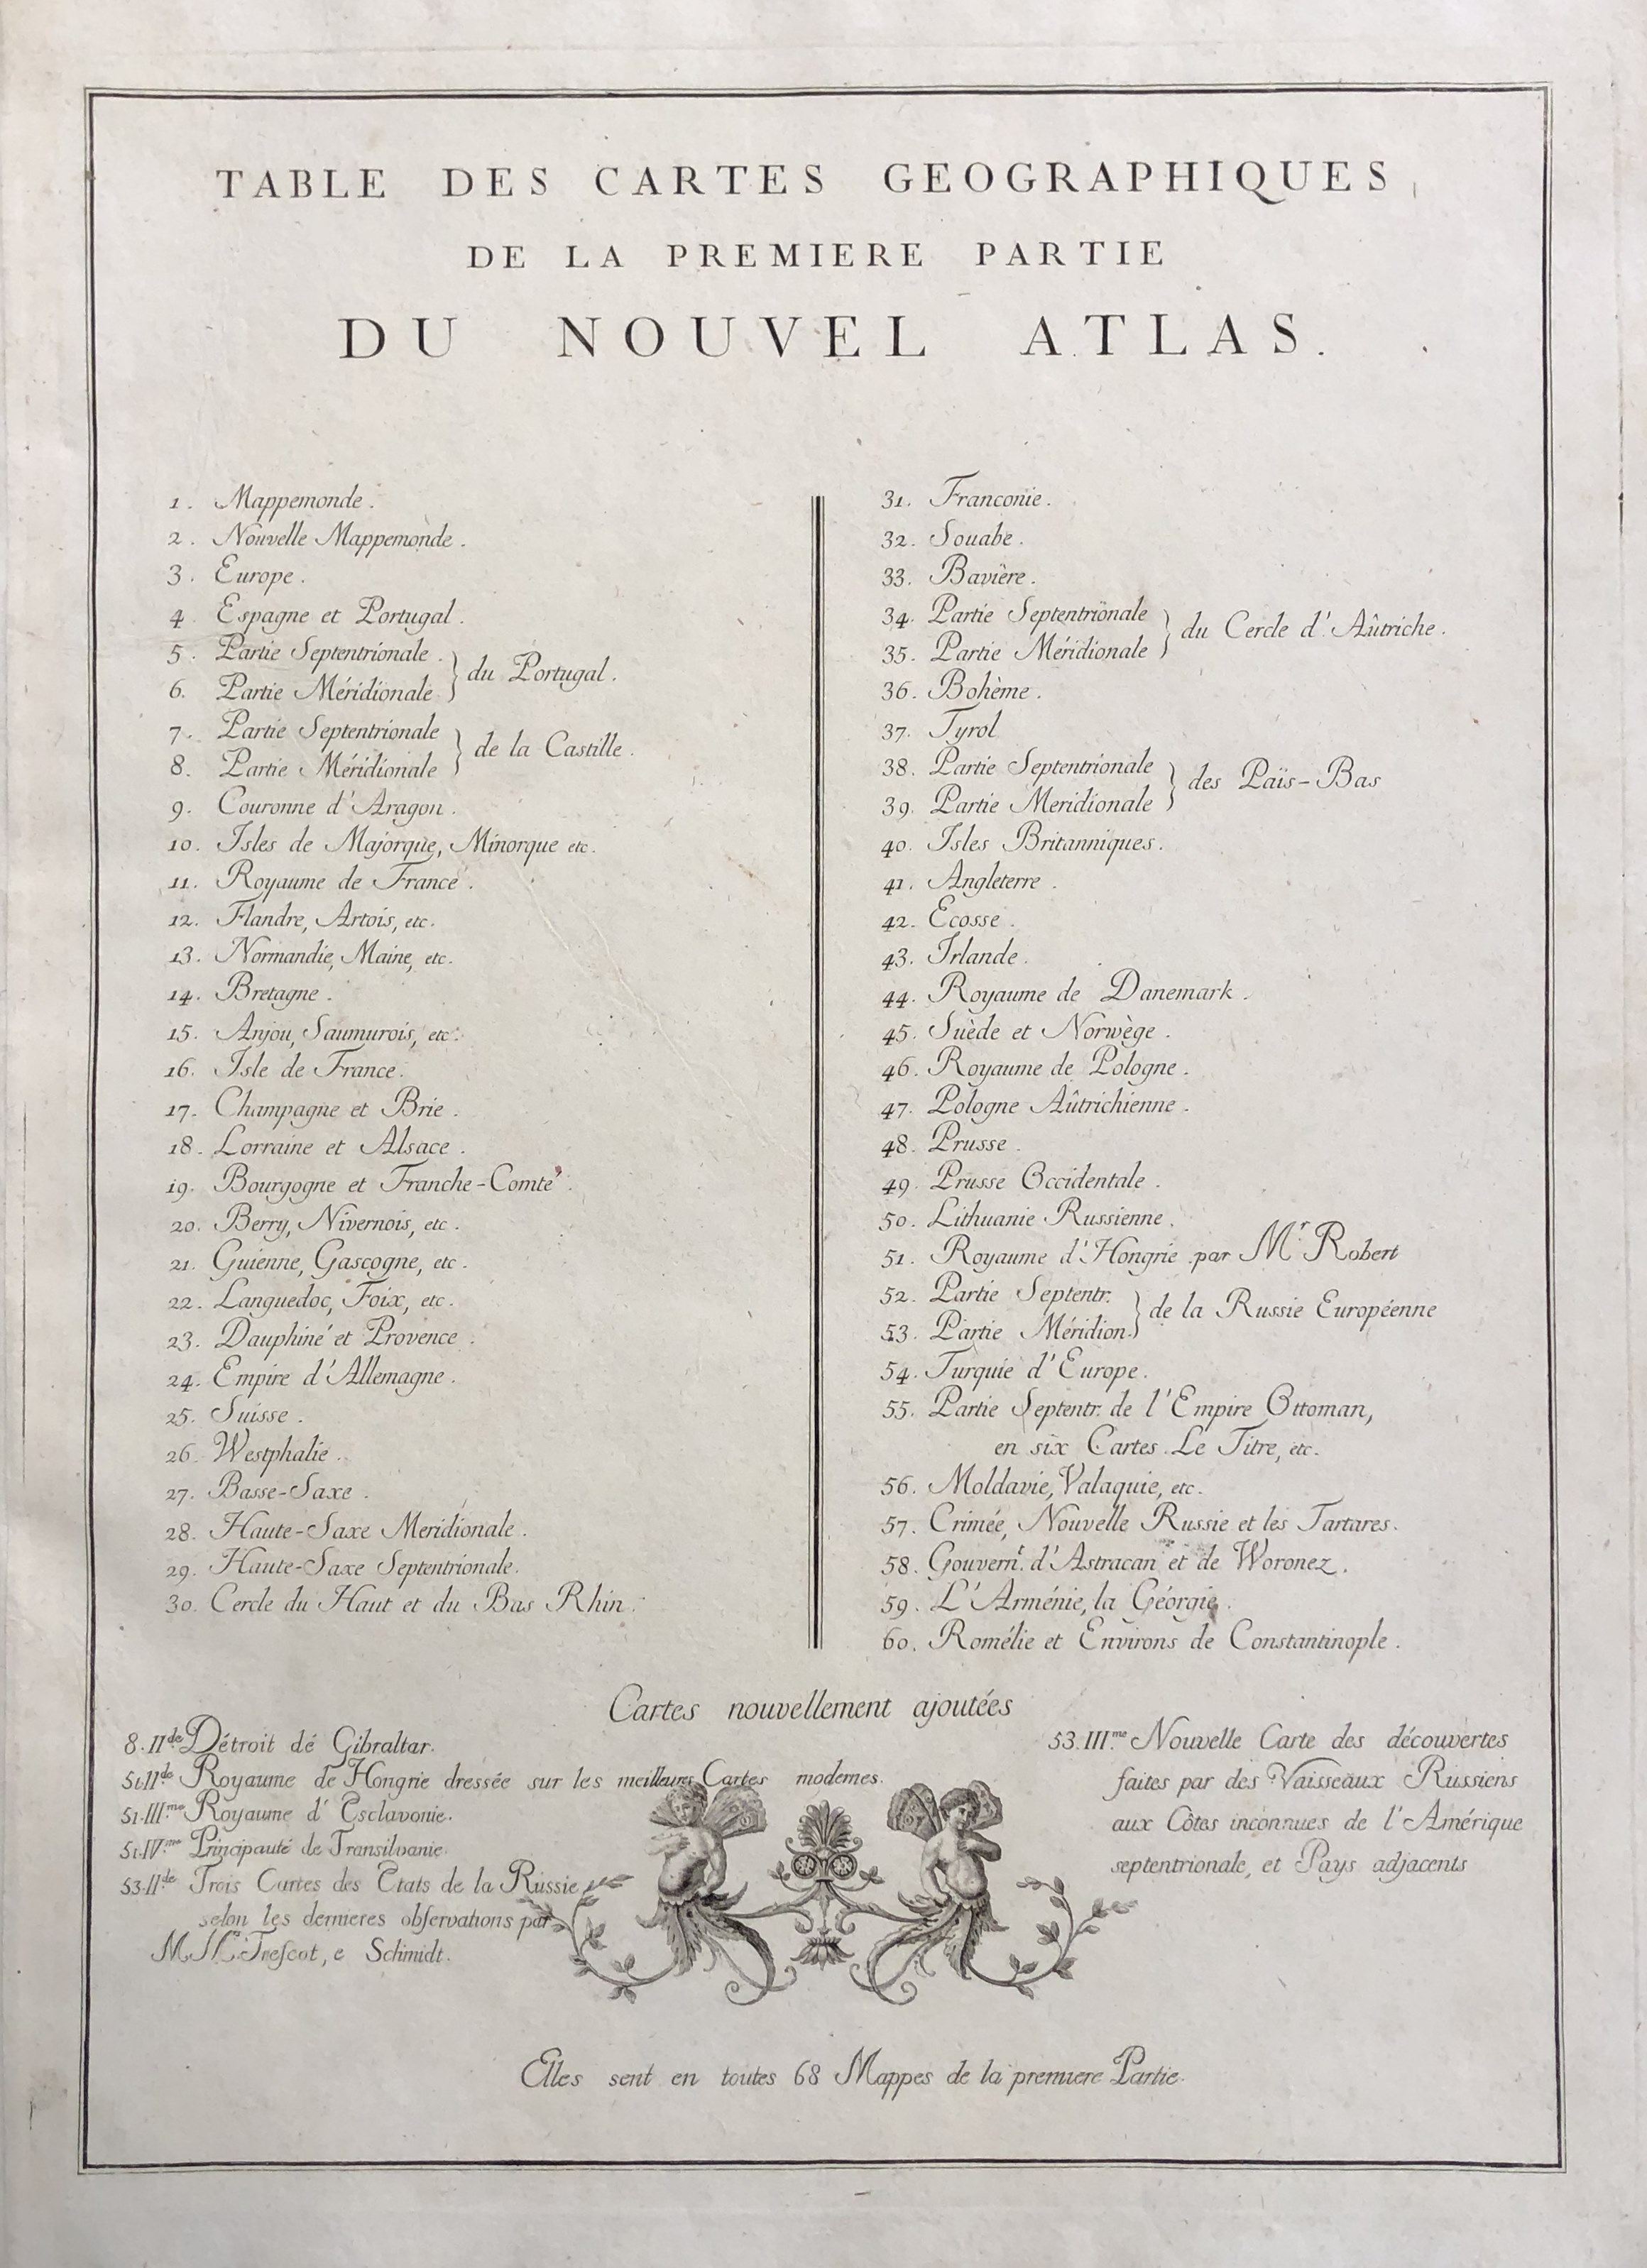 TABLE DES CARTES GEOGRAPHIQUES
DE LA PREMIERE PARTIE
DU NOUVEL ATLAS.
1. Mappemonde.
2. Nouvelle Mappemonde.
3. Europe.
4 Espagne et Portugal.
5. Partie Septentrionale.
6. Partie Méridionale } du Portugal.
7. Partie Septentrionale
8. Partie Méridionale } de la Castille.
9. Couronne d'Aragon.
10. Isles de Majorque, Minorque etc.
11. Royaume de France.
12. Flandre, Artois, etc.
13. Normandie, Maine, etc.
14. Bretagne.
15. Anjou, Saumurois, etc.
16. Isle de France.
17. Champagne et Brie.
18. Lorraine et Alsace.
19. Bourgogne et Franche-Comté.
20. Berry, Nivernois, etc.
21. Guienne, Gascogne, etc.
22. Languedoc, Foix, etc.
23. Dauphiné et Provence.
24. Empire d'Allemagne.
25. Suisse.
26. Westphalie.
27. Basse-Saxe.
28. Haute-Saxe Meridionale.
29. Haute-Saxe Septentrionale.
30. Cercle du Haut et du Bas Rhin.
31. Franconie.
32. Souabe.
33. Bavière.
34. Partie Septentrionale
35. Partie Méridionale } du Cercle d'Aûtriche.
36. Bohème.
37. Tyrol
38. Partie Septentrionale
39. Partie Meridionale } des Païs-Bas
40. Isles Britanniques.
41. Angleterre.
42. Ecosse.
43. Irlande.
44. Royaume de Danemark.
45. Suède et Norwège.
46. Royaume de Pologne.
47. Pologne Aûtrichienne.
48. Prusse.
49. Prusse Occidentale.
50. Lithuanie Russienne.
51. Royaume d'Hongrie par Mr Robert
52. Partie Septentr.
53. Partie Méridion. } de la Russie Européenne
54. Turquie d'Europe.
55. Partie Septentr. de l'Empire Ottoman,
en six Cartes. Le Titre, etc.
56. Moldavie, Valaquie, etc.
57. Crimée, Nouvelle Russie et les Tartares.
58. Gouvernt. d'Astracan et de Woronez.
59. L'Arménie, la Géorgie.
60. Romélie et Environs de Constantinople.
Cartes nouvellement ajoutées
8.IIde Détroit de Gibraltar.
51.IIde Royaume de Hongrie dressée sur les meilleures Cartes modernes.
51.IIIme Royaume d'Esclavonie.
51.IVme Principauté de Transilvanie.
53.IIde Trois Cartes des Etats de la Russie
selon les dernieres obſervations par
Treſcot, e Schimidt.
53.IIIme Nouvelle Carte des découvertes
faites par des Vaisseaux Russiens
aux Côtes inconnues de l'Amérique
septentrionale, et Pays adjacents
Elles sent en toutes 68 Mappes de la premiere Partie.